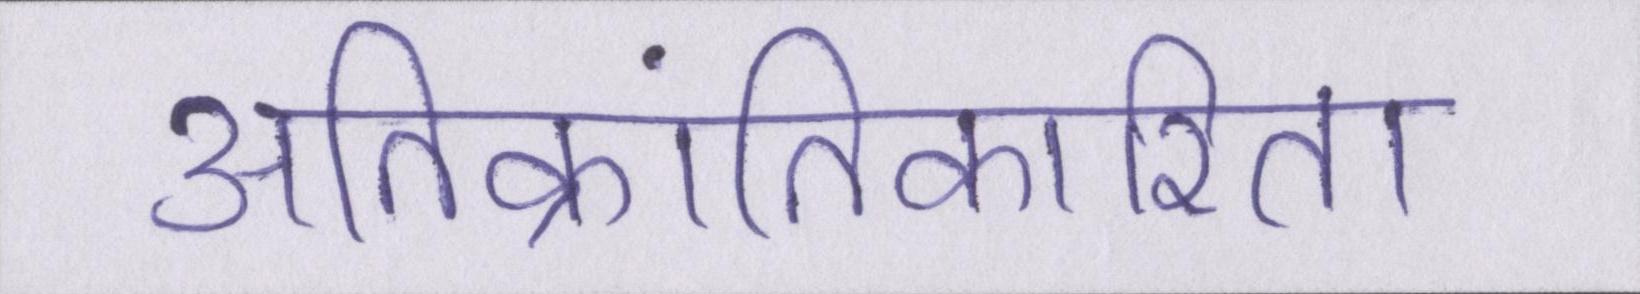 अतिक्रांतिकारिता